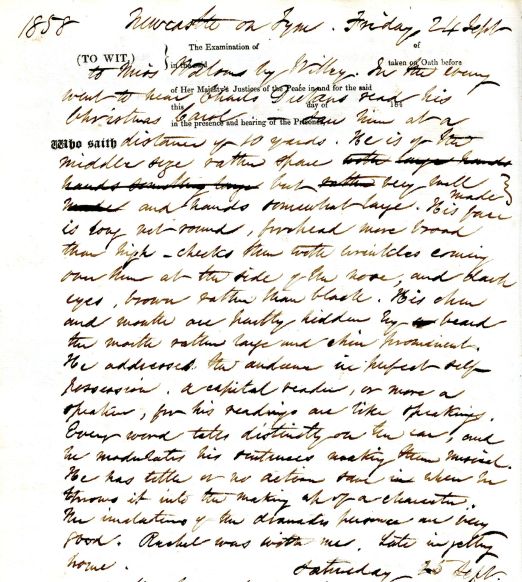 1858 Newcastle on Tyne. Friday, 24 Sept
The Examination of of
(TO WIT,) in the said taken on Oath before
to Miss Watsons by Willey. In the evening
of Her Majesty's Justices of the Peace in and for the said
went to hear Charles Dickens read his
this day of 184
Christmas Carol him at a
in the presence and hearing of the Prisoner
Who saith distance of 10 yards. He is of the
middle size rather spare with large hands
hands something large but rather very well
made
and hands somewhat large. His face
is long not round, forehead more broad
than high – cheeks thin with wrinkles coming
over them at the side of the nose, and black
eyes, brown rather than black. His chin
and mouth are partly hidden by beard
the mouth rather large and chin prominent.
He addressed the audience in perfect self
possession. a capital reader, or more a
speaker, for his readings are like speaking.
Every word tells distinctly on the ear, and
he modulates his sentences making them musical.
He has little or no action save in when he
throws it into the making up of a character.
The imitations of the dramatis personae are very
good. Rachel was with me. Late in getting
home. Saturday 25 Sept.